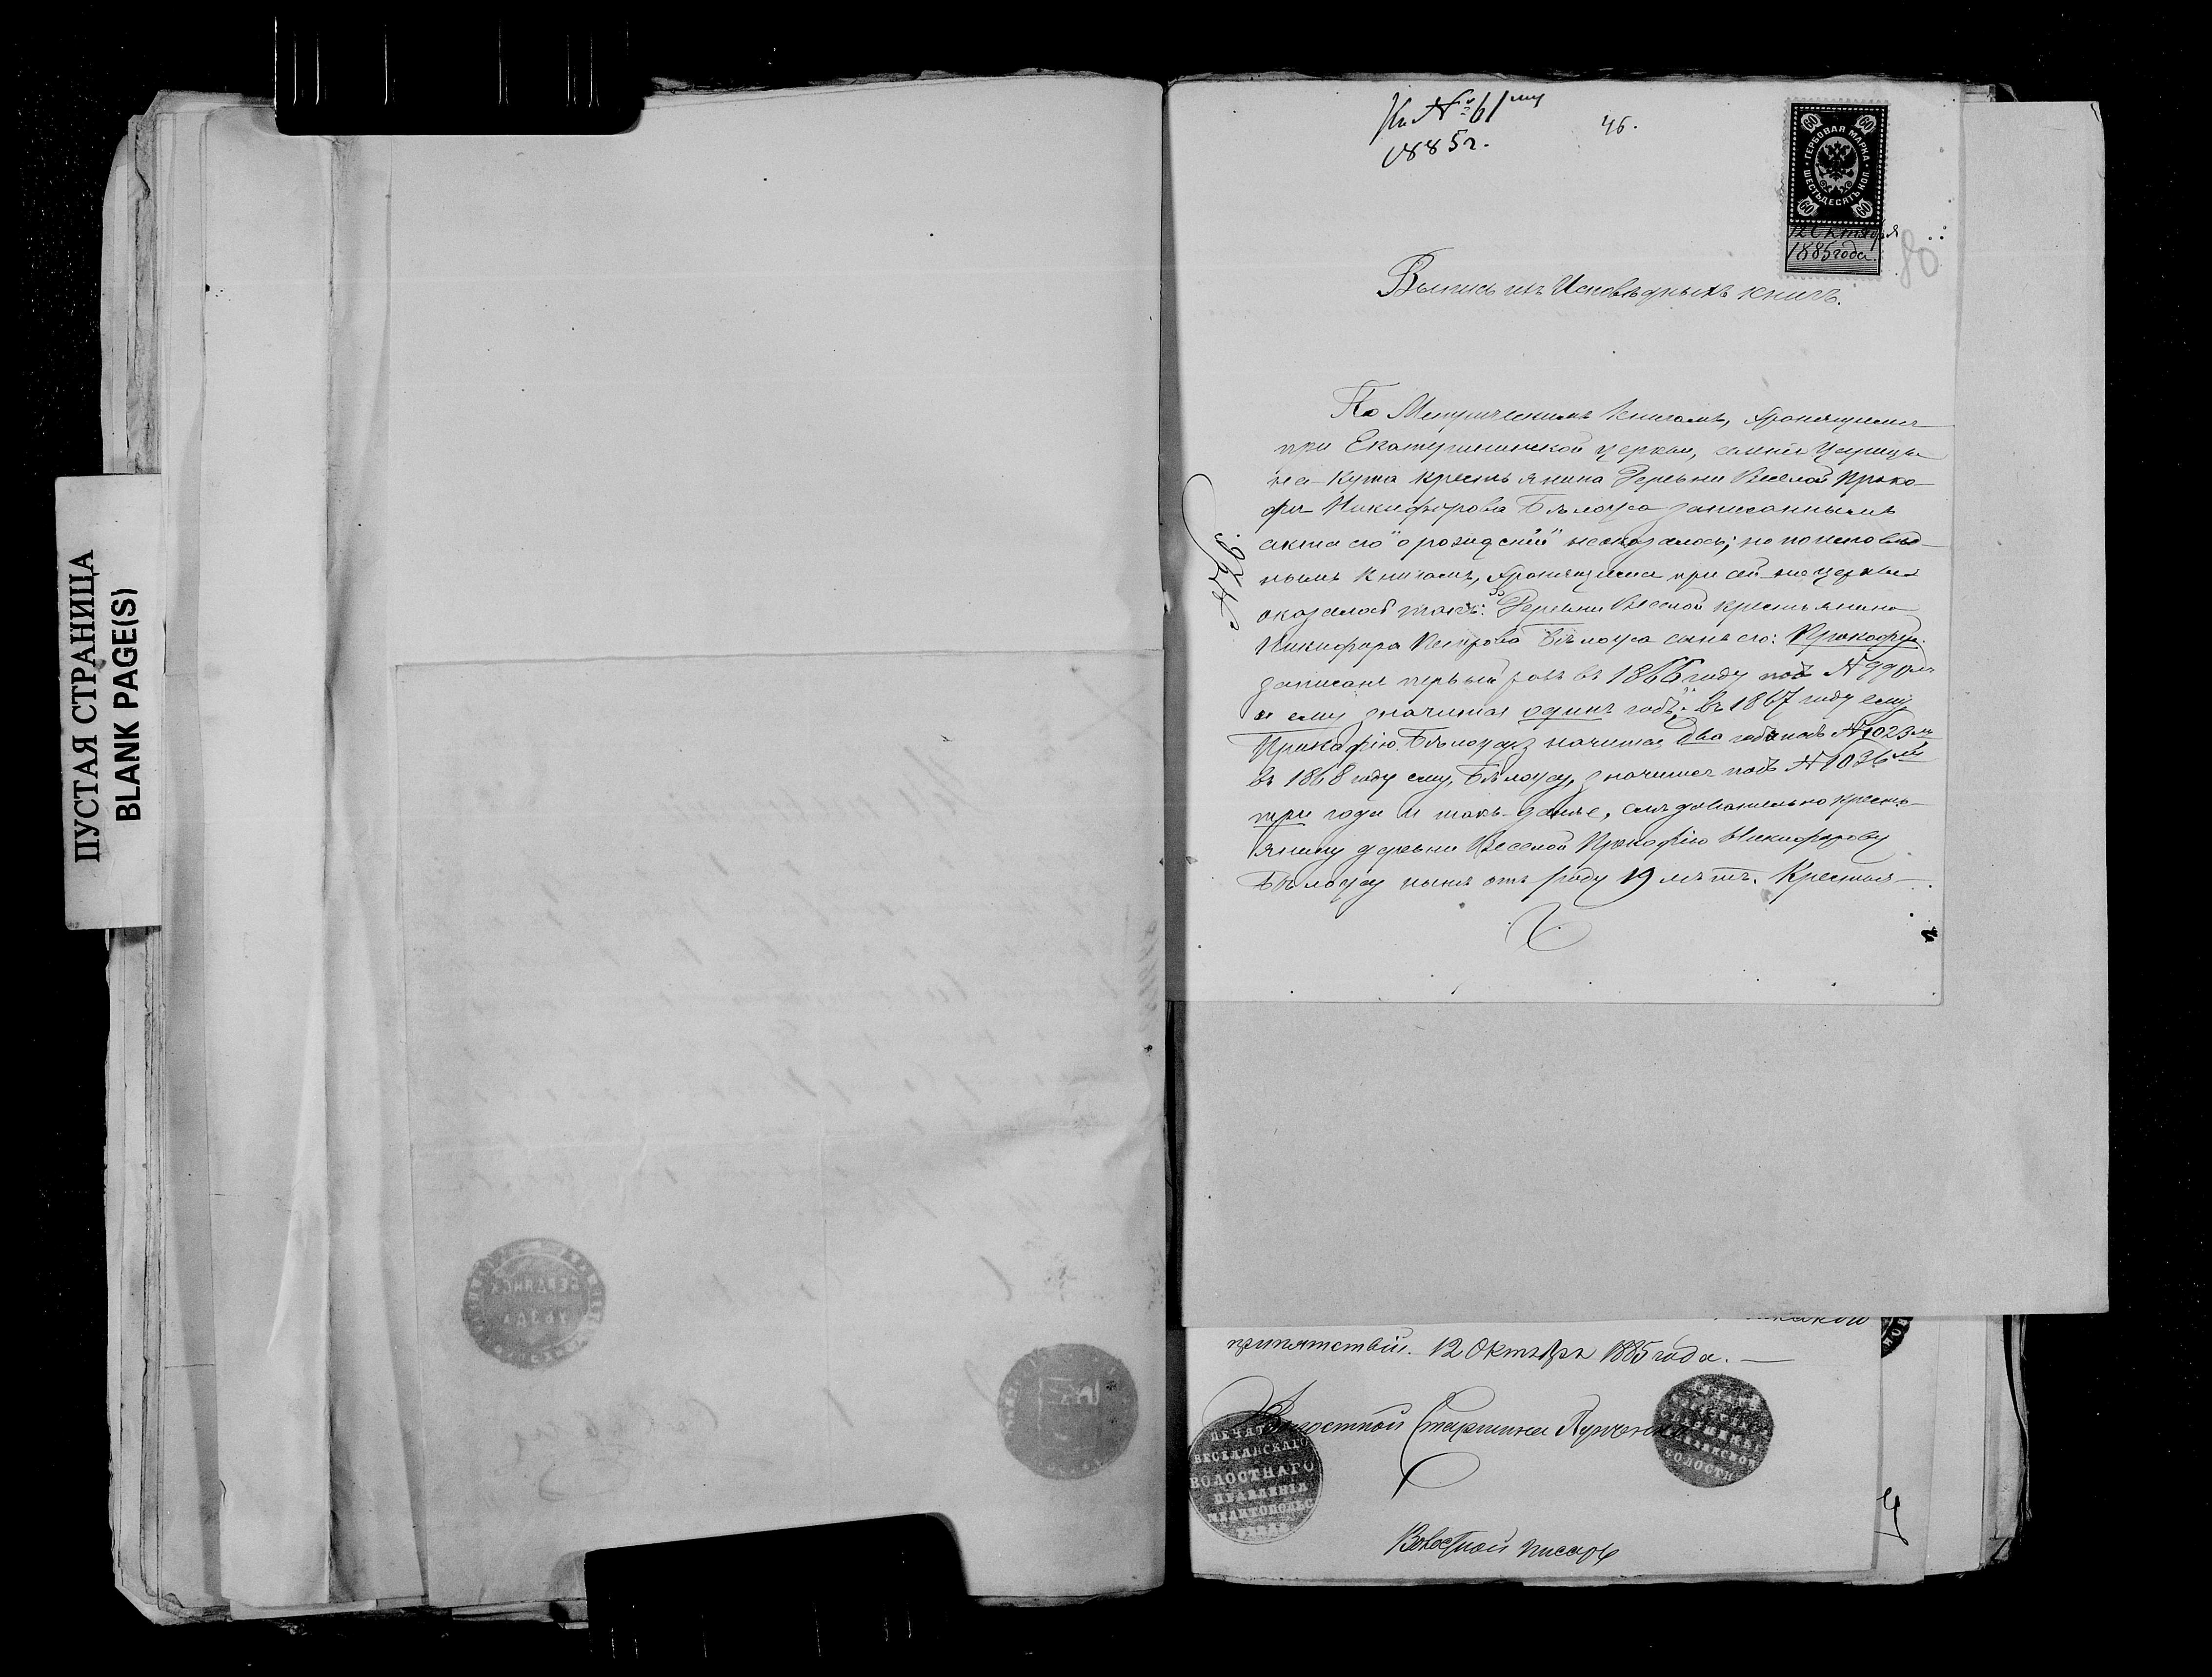 ПУСТАЯ СТРАНИЦА
BLANK PAGE(S)
Къ № 61му
1885 г.
46.
60 60
ГЕРБОВАЯ МАРКА
ШЕСТЬДЕСЯТЬ КОП.
60 60
12 Октября
1885 года.
80
Выпись изъ Исповѣдныхъ книгъ.
По Метрическимъ Книгамъ, хранящимся
при Екатерининской церкви, селенія Царицы-
на-Кута крестьянина Деревни Веселой Проко-
фія Никифорова Бѣлоуса записаннымъ
акта его "о рожденіи" неоказалось; но по исповѣд-
нымъ Книгамъ, хранящимся при сей-же церкви
оказалось такъ: "Деревни Веселой крестьянина
Никифора Петрова Бѣлоуса сынъ его: Прокофій
записанъ первый разъ въ 1866 году подъ № 990мъ
и ему значится одинъ годъ; въ 1867 году ему
Прокофію Бѣлоусу значится два года подъ № 1023мъ
въ 1868 году ему, Бѣлоусу, значится подъ № 1036мъ
три года и такъ-далѣе, слѣдовательно кресть-
янину деревни Веселой Прокофію Никифорову
Бѣлоусу нынѣ отъ роду 19 лѣтъ. Крестья-
препятствій. 12 Октября 1885 года.
Волостной Старшина
ПЕЧАТЬ
ВЕСЕЛАНСКАГО
ВОЛОСТНАГО
ПРАВЛЕНІЯ
МЕЛИТОПОЛЬС
ВОЛОСТИ
Волостной писарь